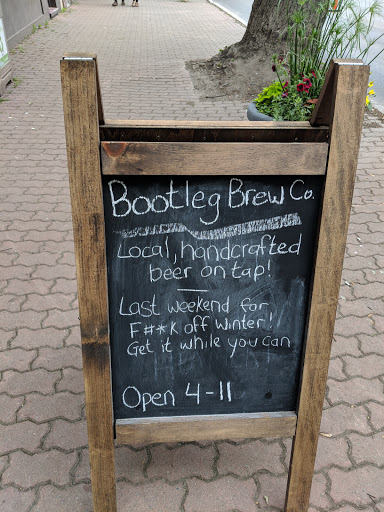 Bootleg Brew Co.
Local, handcrafted
beer on tap!
Last weekend for
F#*K off Winter!
Get it while you can
Open 4-11